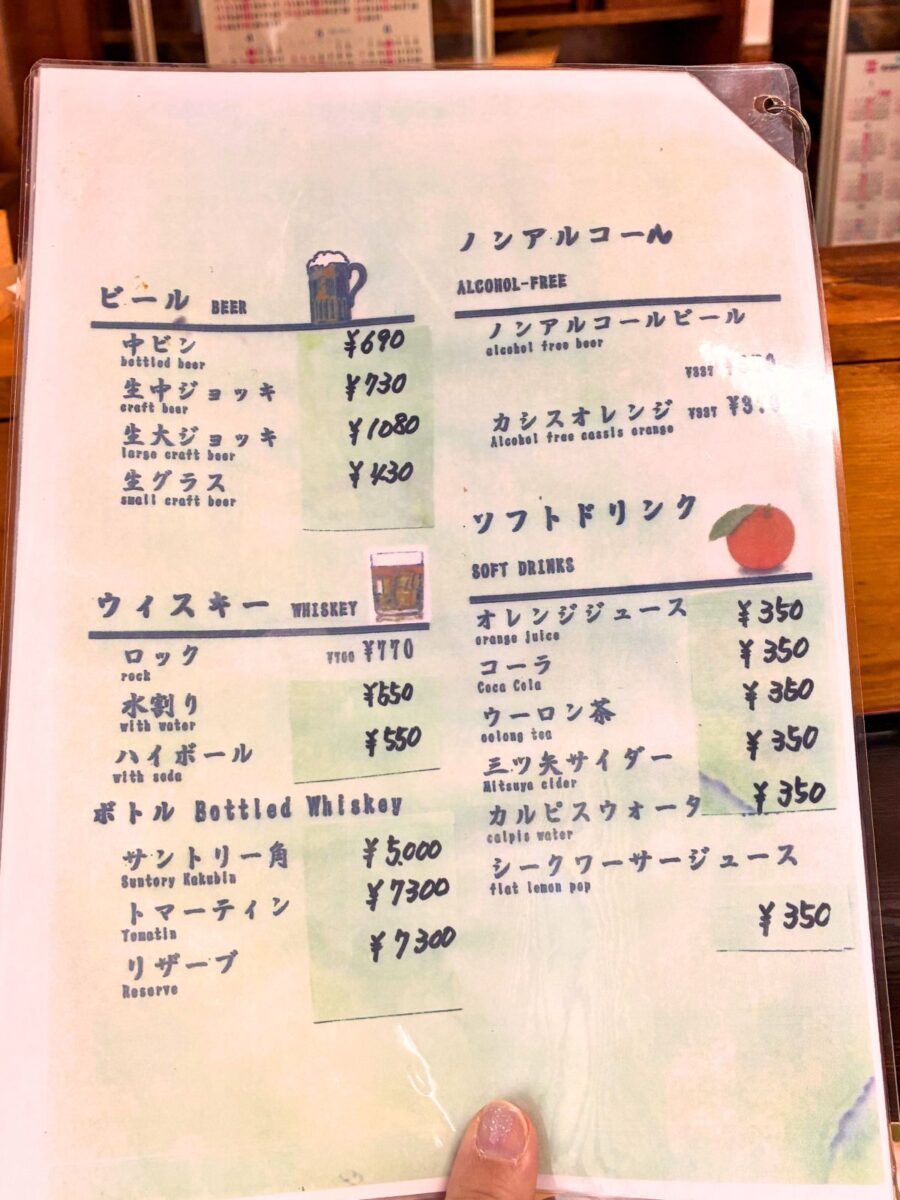 ビール BEER
中ビン ¥690
bottled beer
生中ジョッキ ¥730
craft beer
生大ジョッキ ¥1080
large craft beer
生グラス ¥430
small craft beer
ウィスキー WHISKEY
ロック ¥700 ¥770
rock
水割り ¥550
with water
ハイボール ¥550
with soda
ボトル Bottled Whiskey
サントリー角 ¥5.000
Suntory Kakubin
トマーティン ¥7300
Tomatin
リザーブ ¥7300
Reserve
ノンアルコール
ALCOHOL-FREE
ノンアルコールビール
alcohol free beer
¥337
カシスオレンジ ¥337
Alcohol free cassis orange
ソフトドリンク
SOFT DRINKS
オレンジジュース ¥350
orange juice
コーラ ¥350
Coca Cola
ウーロン茶 ¥350
oolong tea
三ツ矢サイダー ¥350
Mitsuya cider
カルピスウォータ ¥350
calpis water
シークワーサージュース
flat lemon pop
¥350